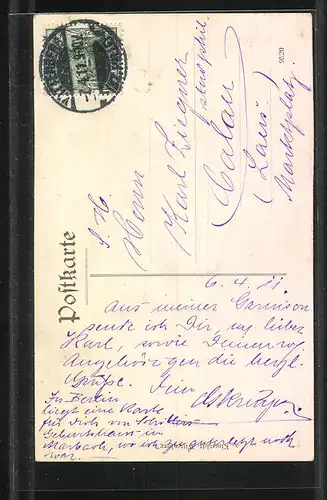 Postkarte
S. H.
Herrn
Karl Ziegner
stud. phil.
Calau
(Laus.)
Marktplatz
9820
6. 4. 11.
Aus meiner Garnison
sende ich Dir, my lieber
Karl, sowie Deinen
Angehörigen die herzl.
Grüße. Dein
In Berlin
liegt eine Karte
für Dich von Schillers
Geburtshaus in
Marbach, wo ich zu guter letzt noch
war.